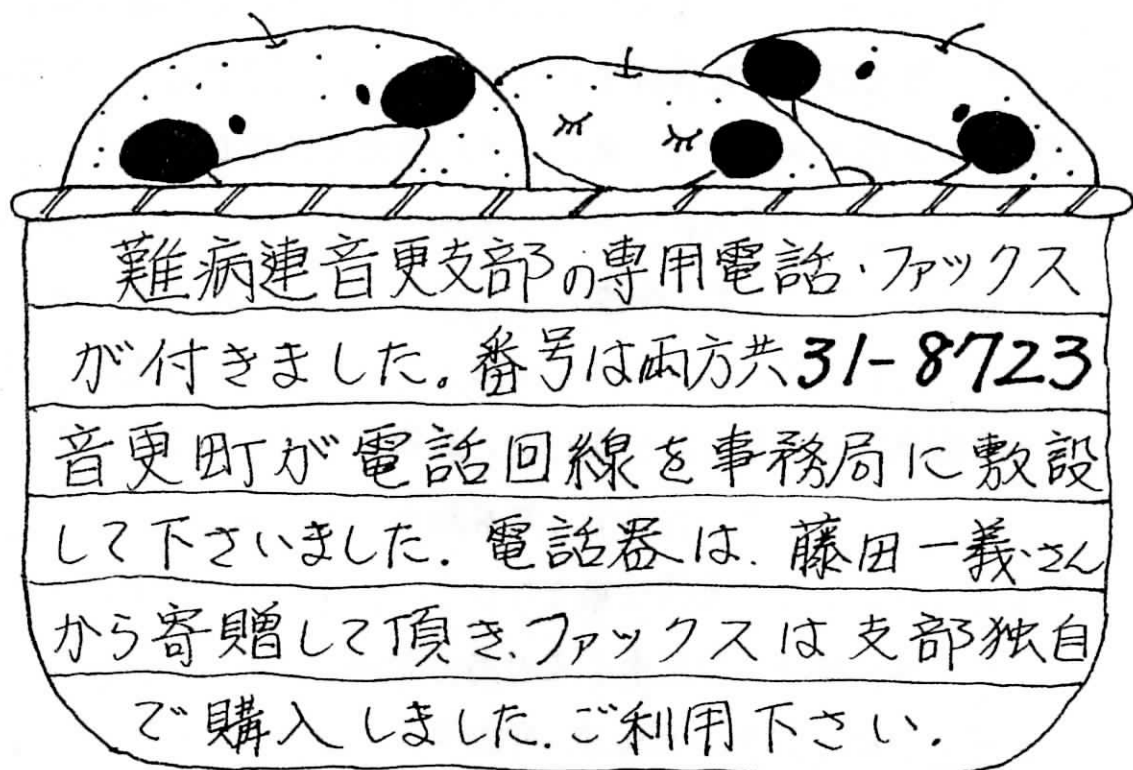 難病連音更支部の専用電話・ファックス
が付きました。番号は両方共31-8723
音更町が電話回線を事務局に敷設
して下さいました。電話器は、藤田一義さん
から寄贈して頂き、ファックスは支部独自
で購入しました。ご利用下さい。